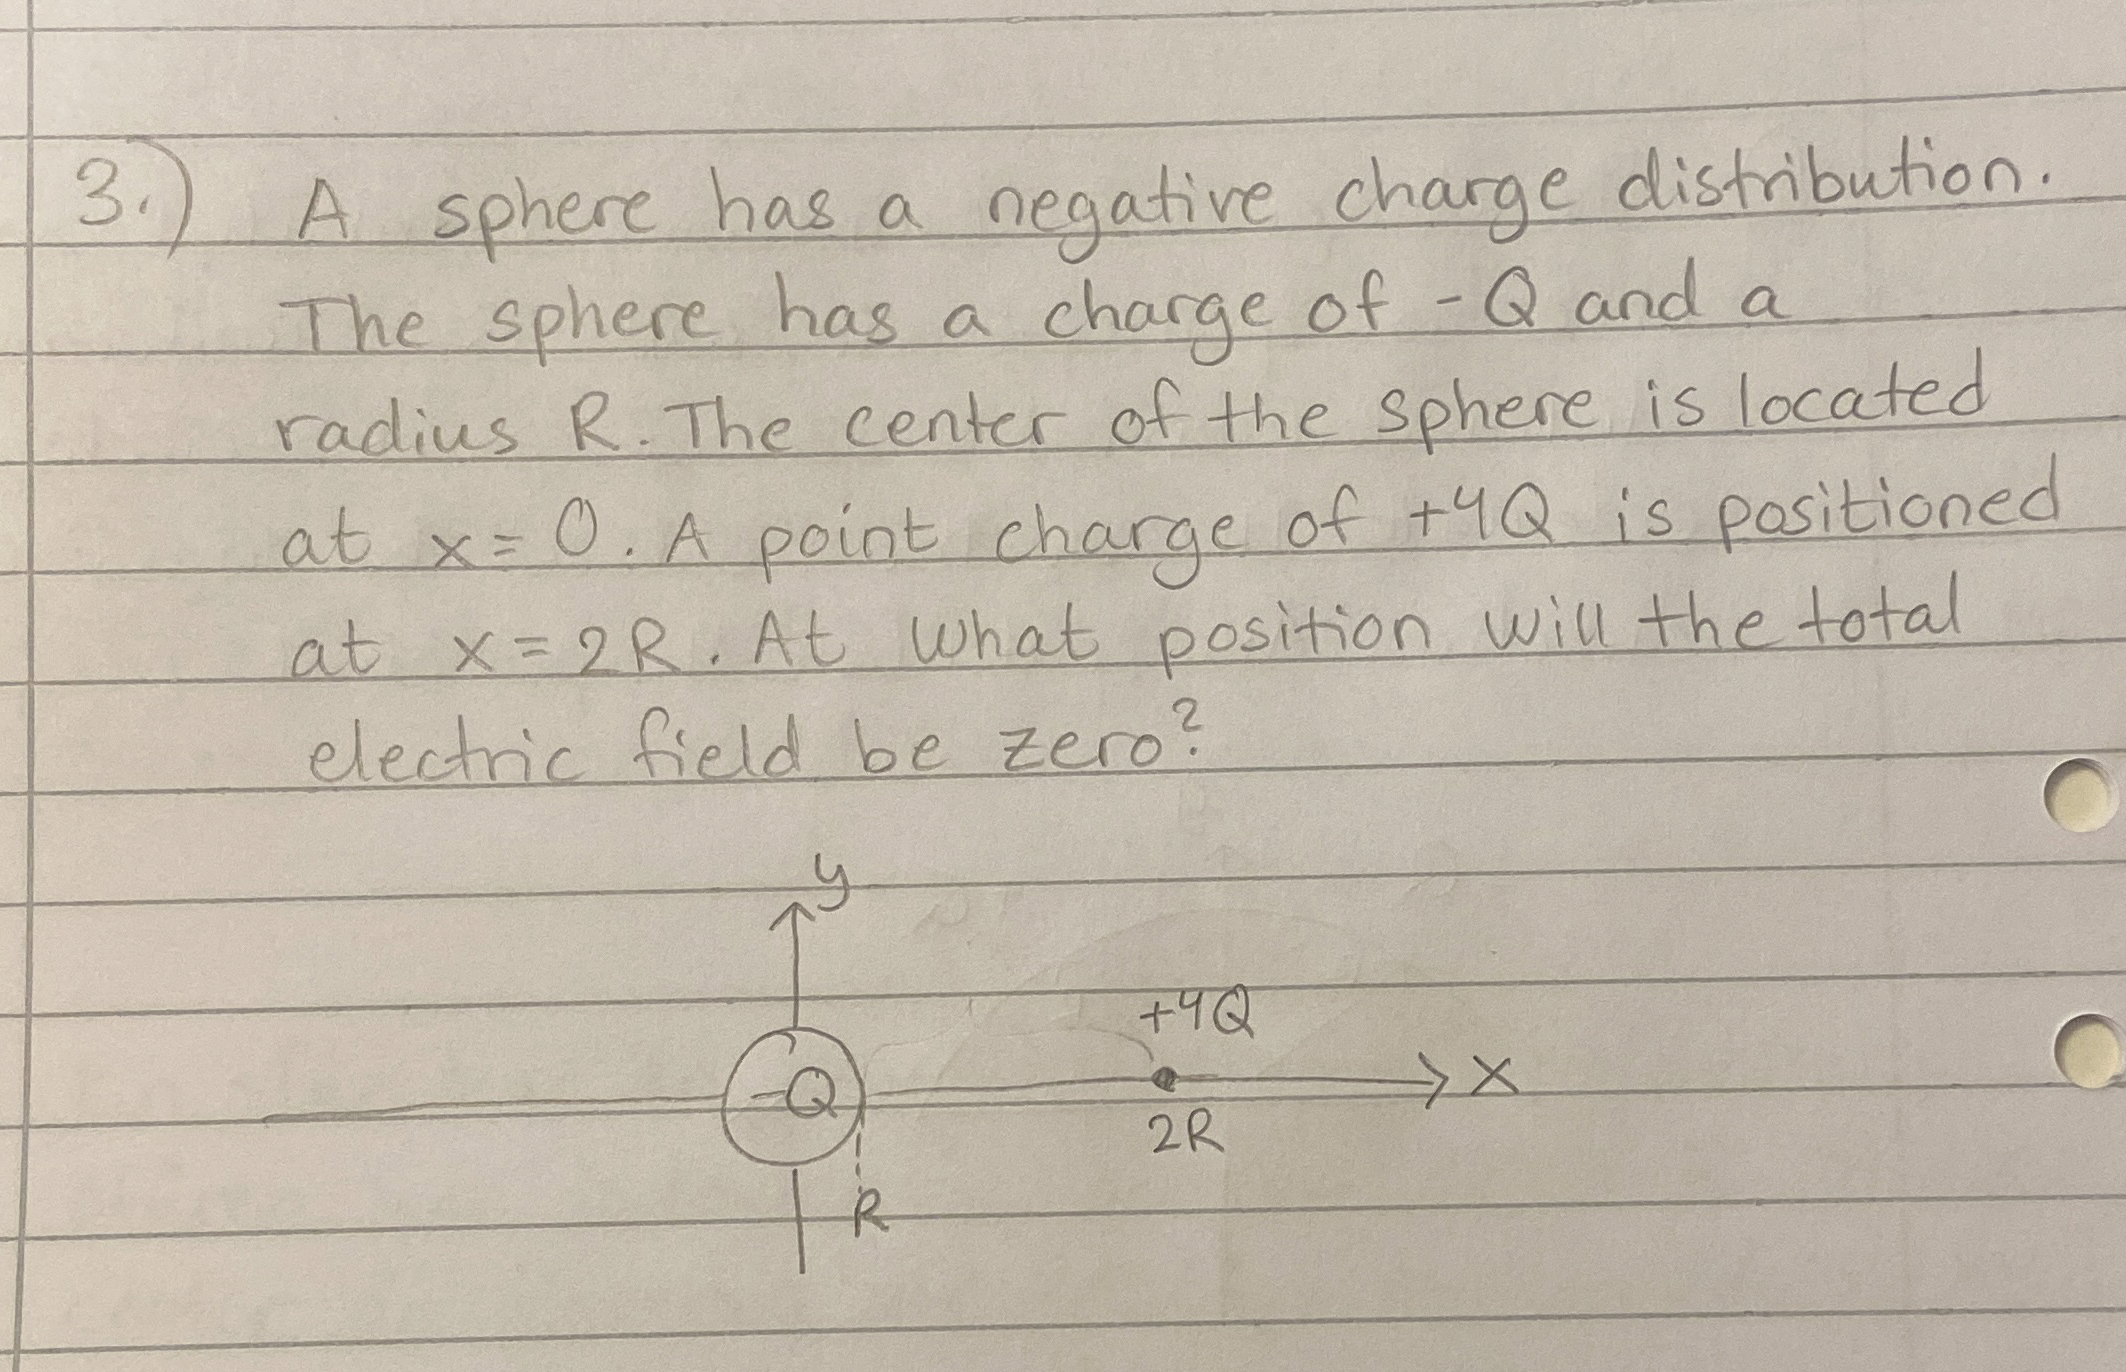 3.) A sphere has a negative charge distribution.
The sphere has a charge of -Q and a
radius R. The center of the sphere is located
at x = 0. A point charge of +4Q is positioned
at x = 2R. At what position will the total
electric field be zero?
y
+4Q
-Q
x
2R
R